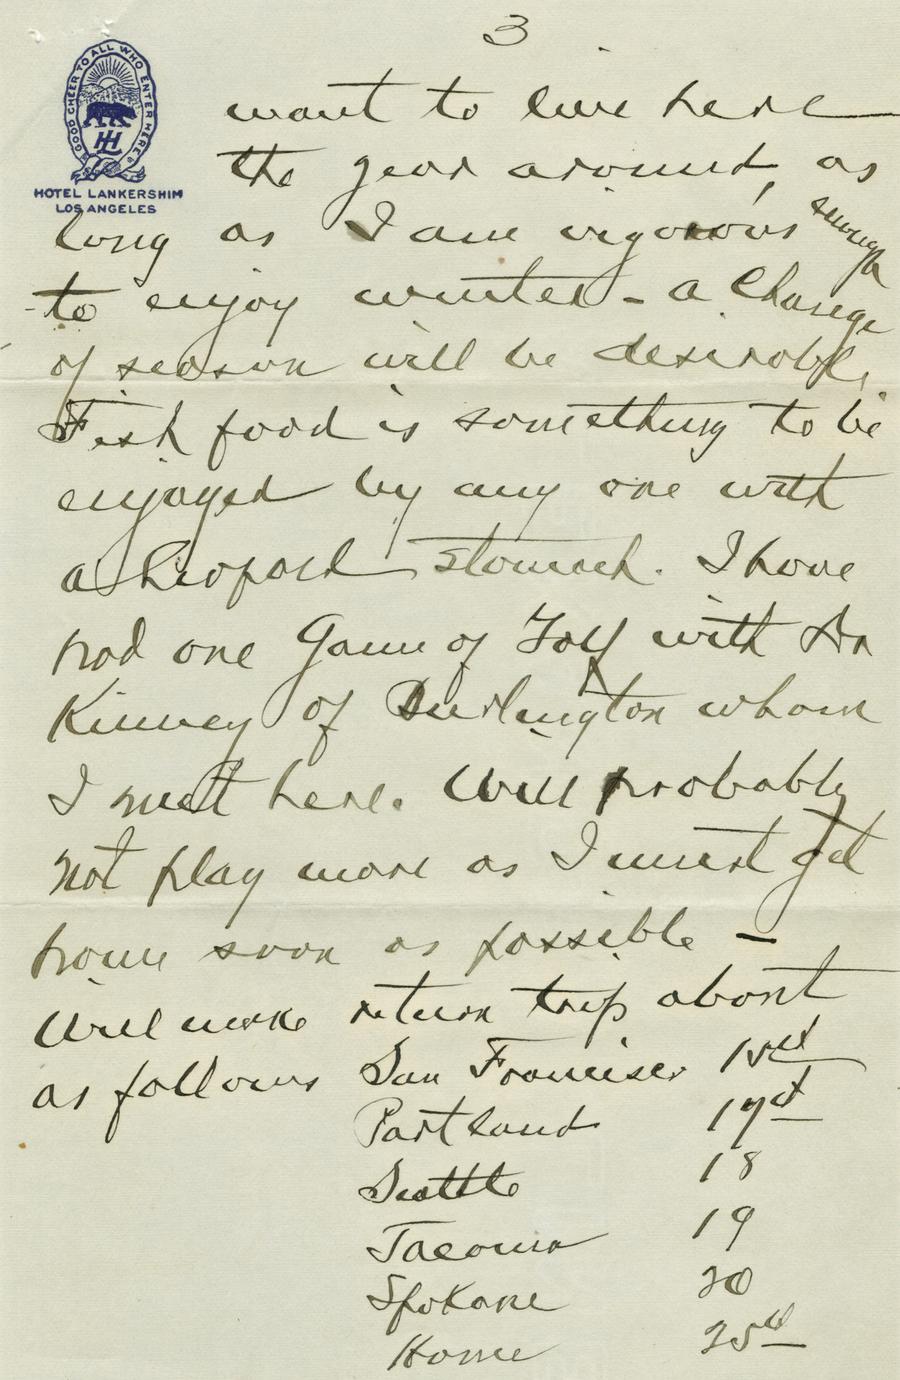 3
GOOD CHEER TO ALL WHO ENTER HERE
HL
HOTEL LANKERSHIM
LOS ANGELES
want to live here
the year around, as
long as I am vigorous enough
to enjoy winter - a change
of season will be desirable,
Fish food is something to be
enjoyed by any one with
a Leopard stomach. I have
had one Game of Golf with Dr
Kinney of Burlington whom
I met here. Will probably
not play more as I must get
home soon as possible -
Will make return trip about
as follows San Francisco 15th
Portland 17th
Seattle 18
Tacoma 19
Spokane 20
Home 25th